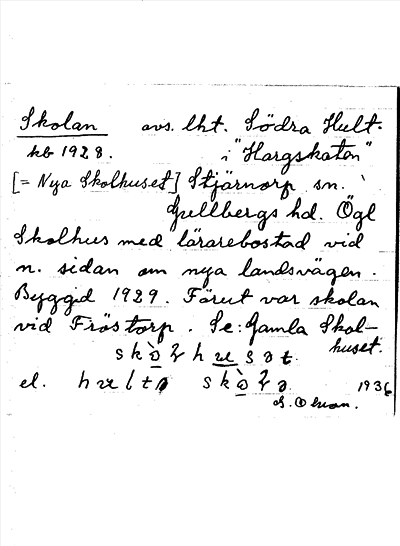 Skolan avs. lht. Södra Hult.
kb 1928. i "Hargskaten"
[= Nya Skolhuset] Stjärnorp sn.
Gullbergs hd. Ögl
Skolhus med lärarebostad vid
n. sidan om nya landsvägen.
Byggd 1929. Förut var skolan
vid Fröstorp. Se: Gamla Skol-
huset.
el.
1936